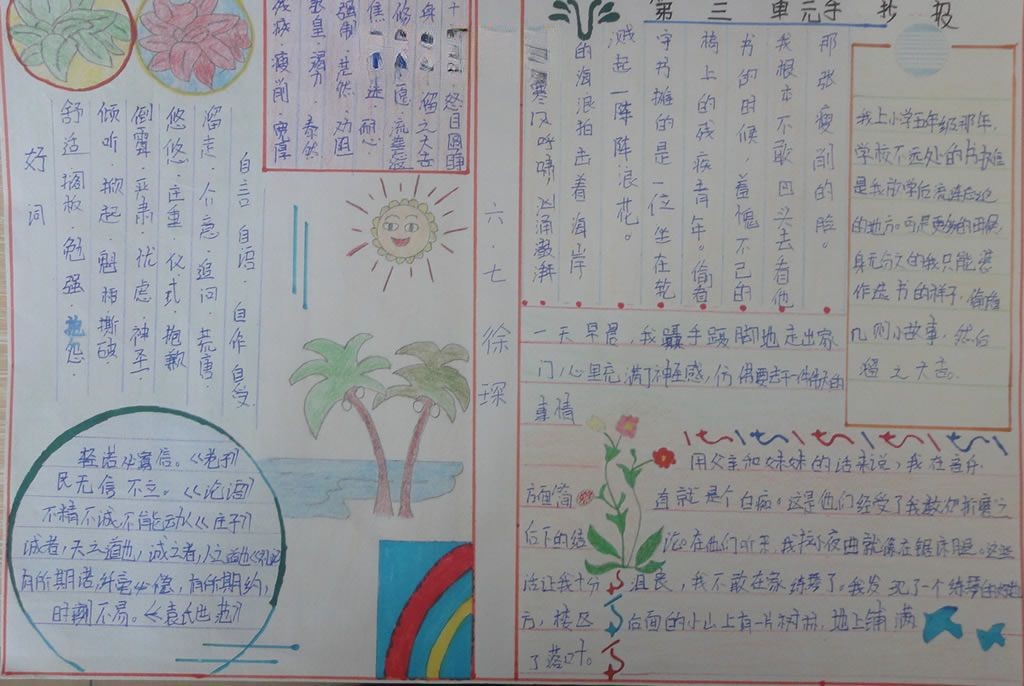 第三单元手抄报
好词
自言自语·自作自受
溜走·介意·追问·荒唐
悠悠·庄重·仪式·抱歉
倒霉·严肃·忧虑·神圣·
倾听·掀起·魁梧·撕破
舒适·搁板·勉强·抱怨·
怒目圆睁
溜之大吉
流连忘返
耐心
强制·茫然·劝阻
泰然
残疾·瘦削·宽厚
轻诺必寡信。《老子》
民无信不立。《论语》
不精不诚,不能动人《庄子》
诚者,天之道也,诚之者,人之道也《礼记
有所期诺,纤毫必偿,有所期约,
时刻不易。《袁氏世范》
六·七
徐琛
那张瘦削的脸。
我根本不敢回头去看他
书的时候,羞愧不已的
椅上的残疾青年。偷看
守书摊的是一位坐在轮
溅起一阵阵浪花。
的海浪拍击着海岸
寒风呼啸,汹涌澎湃
我上小学五年级那年,
学校不远处的书摊
是我放学后流连忘返
的地方。可是更多的时候,
身无分文的我只能装
作选书的样子,偷看
几则小故事,然后
溜之大吉。
一天早晨,我蹑手蹑脚地走出家
门,心里充满了神圣感,仿佛要去干一件伟大的
事情
用父亲和妹妹的话来说,我在音乐
方面简直就是个白痴。这是他们经受了我数次折磨之
后下的结论。在他们听来,我拉小夜曲就像在锯床腿。这些
话让我十分沮丧,我不敢在家练琴了。我发现了一个练琴的好地
方,楼区后面的小山上有一片树林,地上铺满
了落叶。